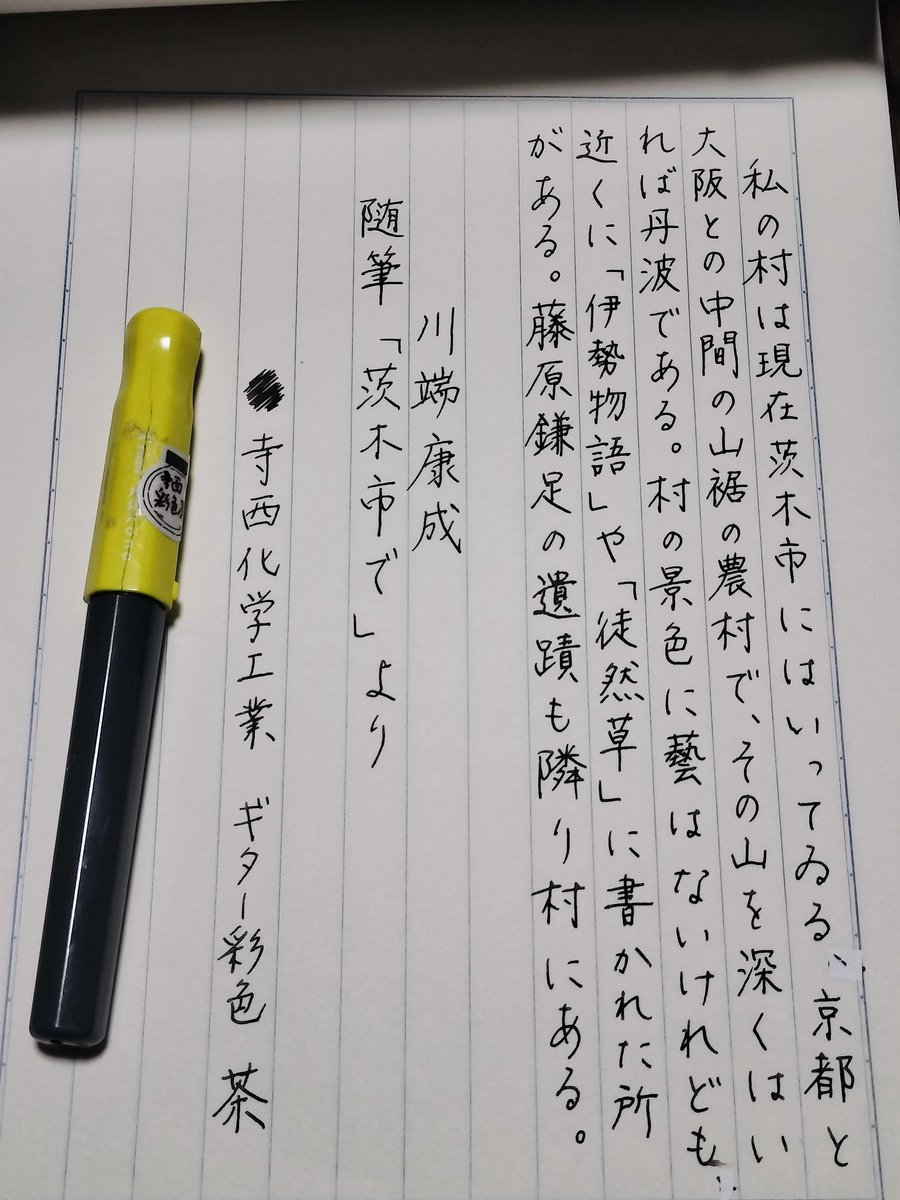 私の村は現在茨木市にはいってゐる。京都と
大阪との中間の山裾の農村で、その山を深くはい
れば丹波である。村の景色に藝はないけれども、
近くに「伊勢物語」や「徒然草」に書かれた所
がある。藤原鎌足の遺蹟も隣り村にある。
川端康成
随筆「茨木市で」より
寺西化学工業 ギター彩色 茶